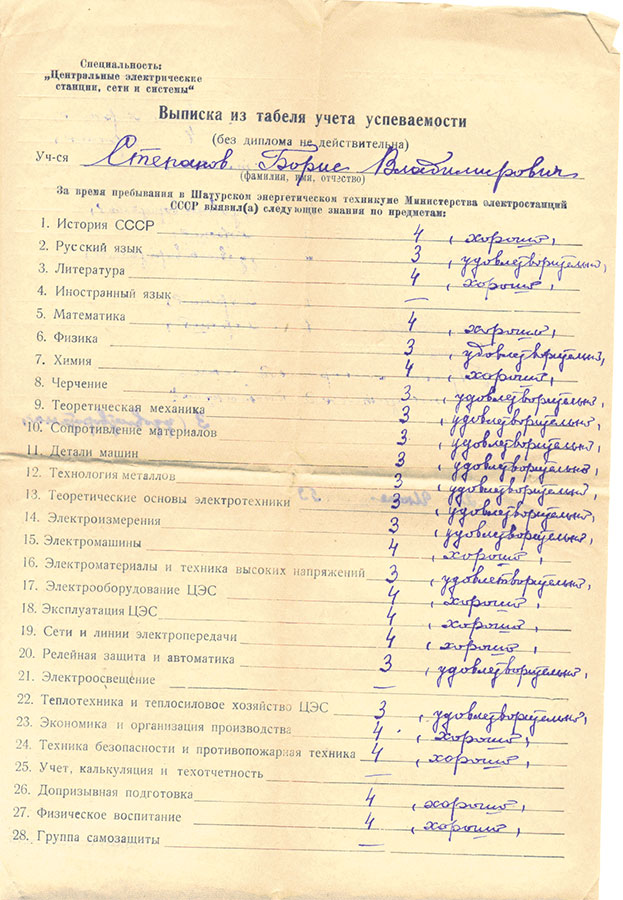 Специальность:
„Центральные электрические
станции, сети и системы“
Выписка из табеля учета успеваемости
(без диплома не действительна)
Уч-ся Степанов Борис Владимирович
(фамилия, имя, отчество)
За время пребывания в Шатурском энергетическом техникуме Министерства электростанций
СССР выявил(а) следующие знания по предметам:
1. История СССР 4, хорошо,
2. Русский язык 3, удовлетворительно,
3. Литература 4, хорошо,
4. Иностранный язык —
5. Математика 4, хорошо,
6. Физика 3, удовлетворительно,
7. Химия 4, хорошо,
8. Черчение 3, удовлетворительно,
9. Теоретическая механика 3, удовлетворительно,
10. Сопротивление материалов 3, удовлетворительно,
11. Детали машин 3, удовлетворительно,
12. Технология металлов 3, удовлетворительно,
13. Теоретические основы электротехники 3, удовлетворительно,
14. Электроизмерения 3, удовлетворительно,
15. Электромашины 4, хорошо,
16. Электроматериалы и техника высоких напряжений 3, удовлетворительно,
17. Электрооборудование ЦЭС 4, хорошо,
18. Эксплуатация ЦЭС 4, хорошо,
19. Сети и линии электропередачи 4, хорошо,
20. Релейная защита и автоматика 3, удовлетворительно,
21. Электроосвещение —
22. Теплотехника и теплосиловое хозяйство ЦЭС 3, удовлетворительно,
23. Экономика и организация производства 4, хорошо,
24. Техника безопасности и противопожарная техника 4, хорошо,
25. Учет, калькуляция и техотчетность —
26. Допризывная подготовка 4, хорошо,
27. Физическое воспитание 4, хорошо,
28. Группа самозащиты —